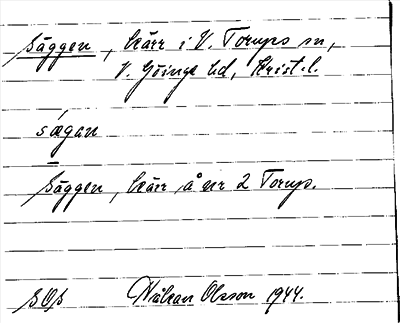 Säggen, kärr i V. Torups sn,
V. Göinge hd, Krist. l.
sǽgan
Säggen, kärr å nr 2 Torup.
SOS Håkan Olsson 1944.